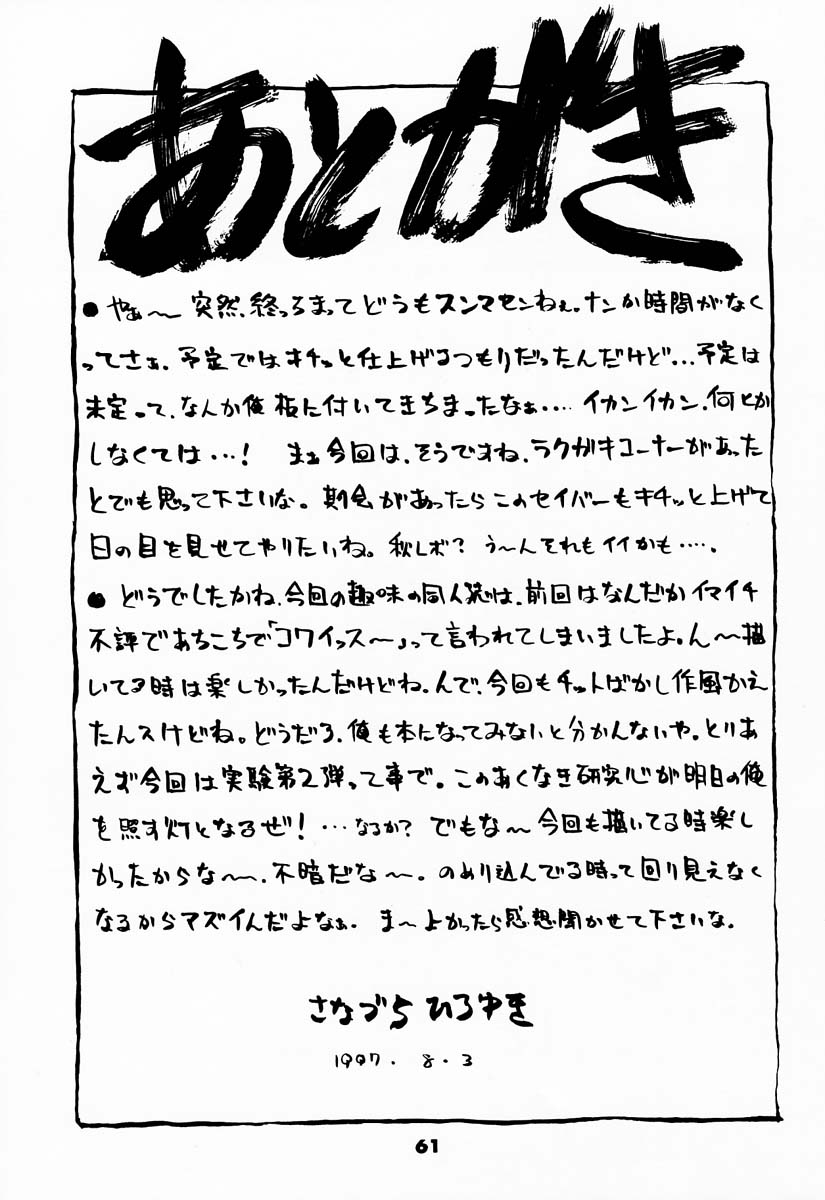 あとがき
●やぁ〜突然、終っちまってどうもスンマセンねぇ。ナンか時間がなく
ってさぁ。予定ではキチッと仕上げるつもりだったんだけど…予定は
未定って、なんか俺板に付いてきちまったなぁ…. イカンイカン、何とか
しなくては…! まぁ今回は、そうですね、ラクガキコーナーがあった
とでも思って下さいな。期会があったらこのセイバーもキチッと上げて
日の目を見せてやりたいね。秋レボ? う〜んそれもイイかも….
●どうでしたかね、今回の趣味の同人誌は、前回はなんだかイマイチ
不評であちこちで「コワイっス〜」って言われてしまいましたよ。ん〜描
いてる時は楽しかったんだけどね。んで、今回もチットばかし作風かえ
たんスけどね。どうだろ、俺も本になってみないと分かんないや。とりあ
えず今回は実験第2弾って事で。このあくなき研究心が明日の俺
を照す灯となるぜ! …なるか? でもな〜今回も描いてる時楽し
かったからな〜、不暗だな〜。のめり込んでる時って回り見えなく
なるからマズイんだよなぁ. ま〜よかったら感想聞かせて下さいな。
さなづら ひろゆき
1997. 8.3
61